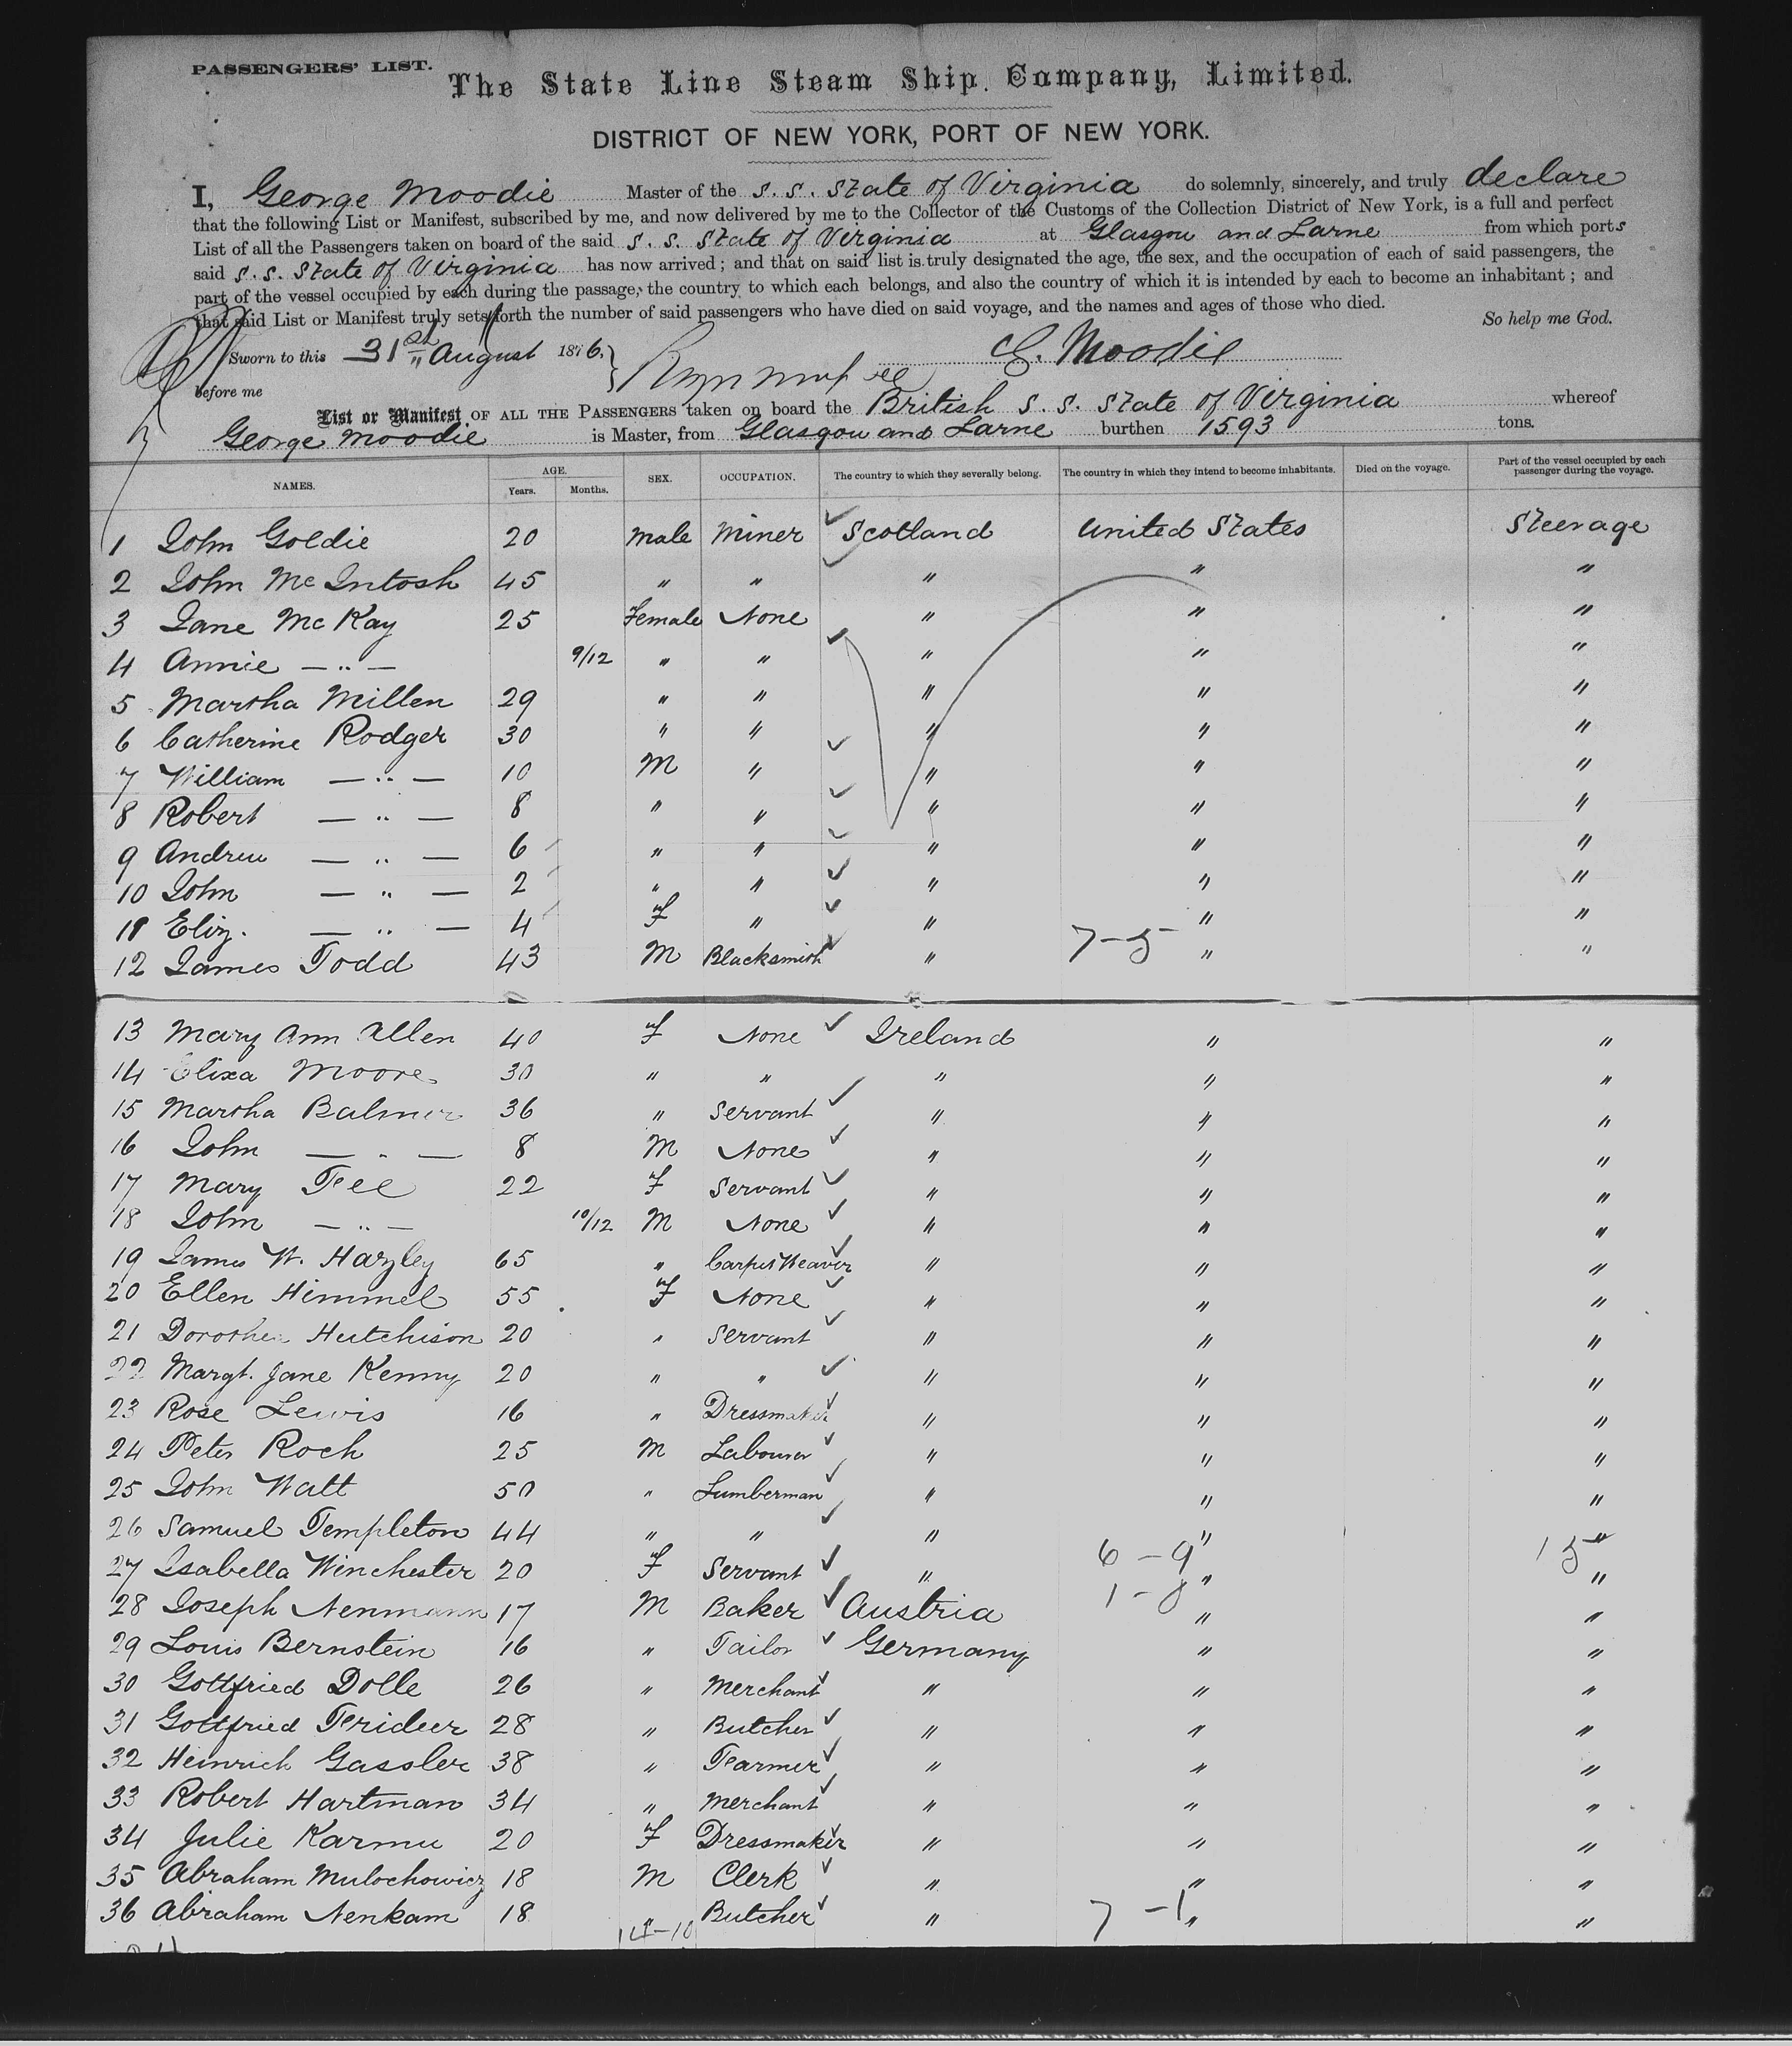 PASSENGERS' LIST.
The State Line Steam Ship Company, Limited.
DISTRICT OF NEW YORK, PORT OF NEW YORK.
I, George Moodie Master of the s.s. State of Virginia do solemnly, sincerely, and truly declare
that the following List or Manifest, subscribed by me, and now delivered by me to the Collector of the Customs of the Collection District of New York, is a full and perfect
List of all the Passengers taken on board of the said s.s. State of Virginia at Glasgow and Larne from which ports
said s.s. State of Virginia has now arrived; and that on said list is truly designated the age, the sex, and the occupation of each of said passengers, the
part of the vessel occupied by each during the passage, the country to which each belongs, and also the country of which it is intended by each to become an inhabitant; and
that said List or Manifest truly sets forth the number of said passengers who have died on said voyage, and the names and ages of those who died.
So help me God.
Sworn to this 31st August 1876. G. Moodie
before me
List or Manifest OF ALL THE PASSENGERS taken on board the British s.s. State of Virginia whereof
George Moodie is Master, from Glasgow and Larne burthen 1593 tons.
NAMES. AGE. Years. Months. SEX. OCCUPATION. The country to which they severally belong. The country in which they intend to become inhabitants. Died on the voyage. Part of the vessel occupied by each passenger during the voyage.
1 John Goldie 20 Male Miner Scotland United States Steerage
2 John McIntosh 45 " " " " "
3 Jane McKay 25 Female None " " "
4 Annie — " — 9/12 " " " " "
5 Martha Millen 29 " " " " "
6 Catherine Rodger 30 " " " " "
7 William — " — 10 M " " " "
8 Robert — " — 8 " " " " "
9 Andrew — " — 6 " " " " "
10 John — " — 2 " " " " "
11 Eliz. — " — 4 F " " " "
12 James Todd 43 M Blacksmith " 7-5 " "
13 Mary Ann Allen 40 F None Ireland " "
14 Eliza Moore 30 " " " " "
15 Martha Balmer 36 " Servant " " "
16 John — " — 8 M None " " "
17 Mary Fee 22 F Servant " " "
18 John — " — 10/12 M None " " "
19 James W. Hazley 65 " Carpet Weaver " " "
20 Ellen Himmel 55 F None " " "
21 Dorothea Hutchison 20 " Servant " " "
22 Margt. Jane Kenny 20 " " " " "
23 Rose Lewis 16 " Dressmaker " " "
24 Peter Roch 25 M Labourer " " "
25 John Watt 50 " Lumberman " " "
26 Samuel Templeton 44 " " " " "
27 Isabella Winchester 20 F Servant " 6-9 " 15 "
28 Joseph Nenmann 17 M Baker Austria 1-0 " "
29 Louis Bernstein 16 " Tailor Germany " "
30 Gottfried Dolle 26 " Merchant " " "
31 Gottfried 28 " Butcher " " "
32 Heinrich Gassler 38 " Farmer " " "
33 Robert Hartman 34 " Merchant " " "
34 Julie Karmu 20 F Dressmaker " " "
35 Abraham Mulochowicz 18 M Clerk " " "
36 Abraham Nenkam 18 " Butcher " 7-1 " "